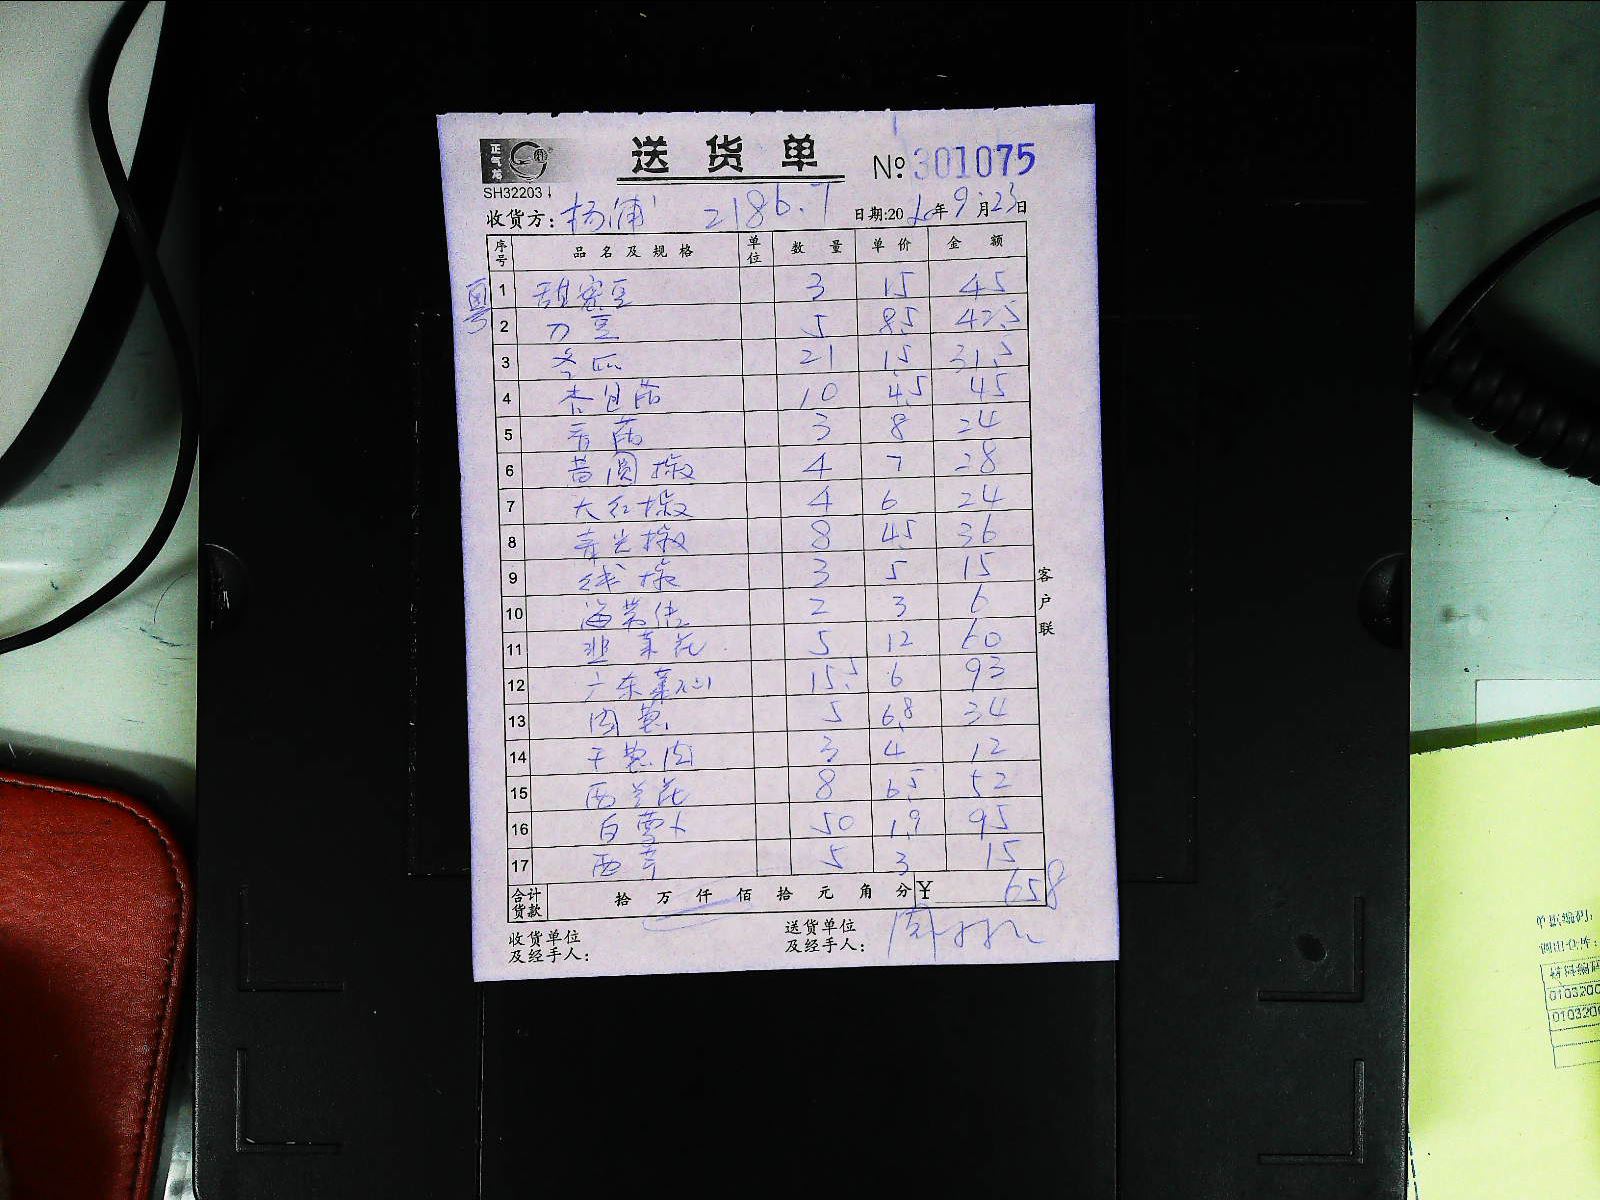 正气龙
送 货 单
№ 301075
SH32203
收货方: 杨浦 2186.7 日期:20 年 9 月 23 日
序号 品名及规格 单位 数量 单价 金额
粤
1 甜蜜豆 3 15 45
2 刀豆 5 8.5 42.5
3 冬瓜 21 1.5 31.5
4 杏包菇 10 4.5 45
5 香菇 3 8 24
6 黄圆椒 4 7 28
7 大红椒 4 6 24
8 青尖椒 8 4.5 36
9 线椒 3 5 15
10 海带结 2 3 6
11 韭菜花 5 12 60
12 广东菜心 15.5 6 93
13 肉葱 5 6.8 34
14 干葱肉 3 4 12
15 西兰花 8 6.5 52
16 白萝卜 50 1.9 95
17 西芹 5 3 15
合计货款 拾 万 仟 佰 拾 元 角 分 ¥ 658
客户联
收货单位及经手人:
送货单位及经手人: 周
单据编码:
调出仓库: